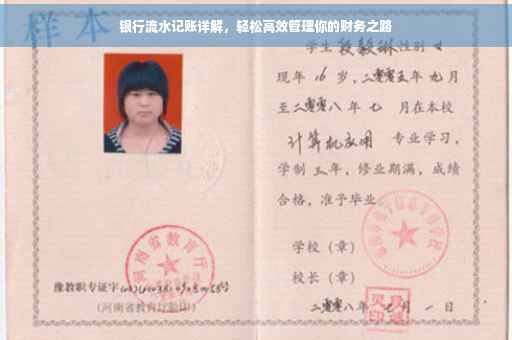 银行流水记账详解，轻松高效管理你的财务之路
样本
学生 段毅琳 性别 女
现年 16 岁，二零零五年 九月
至二零零八年 七 月在本校
计算机应用 专业学习，
学制 三年，修业期满，成绩
合格，准予毕业
学校（章）
校长（章）
二零零八年 月 一 日
河南省教育厅
豫教职专证字
（河南省教育厅验印）